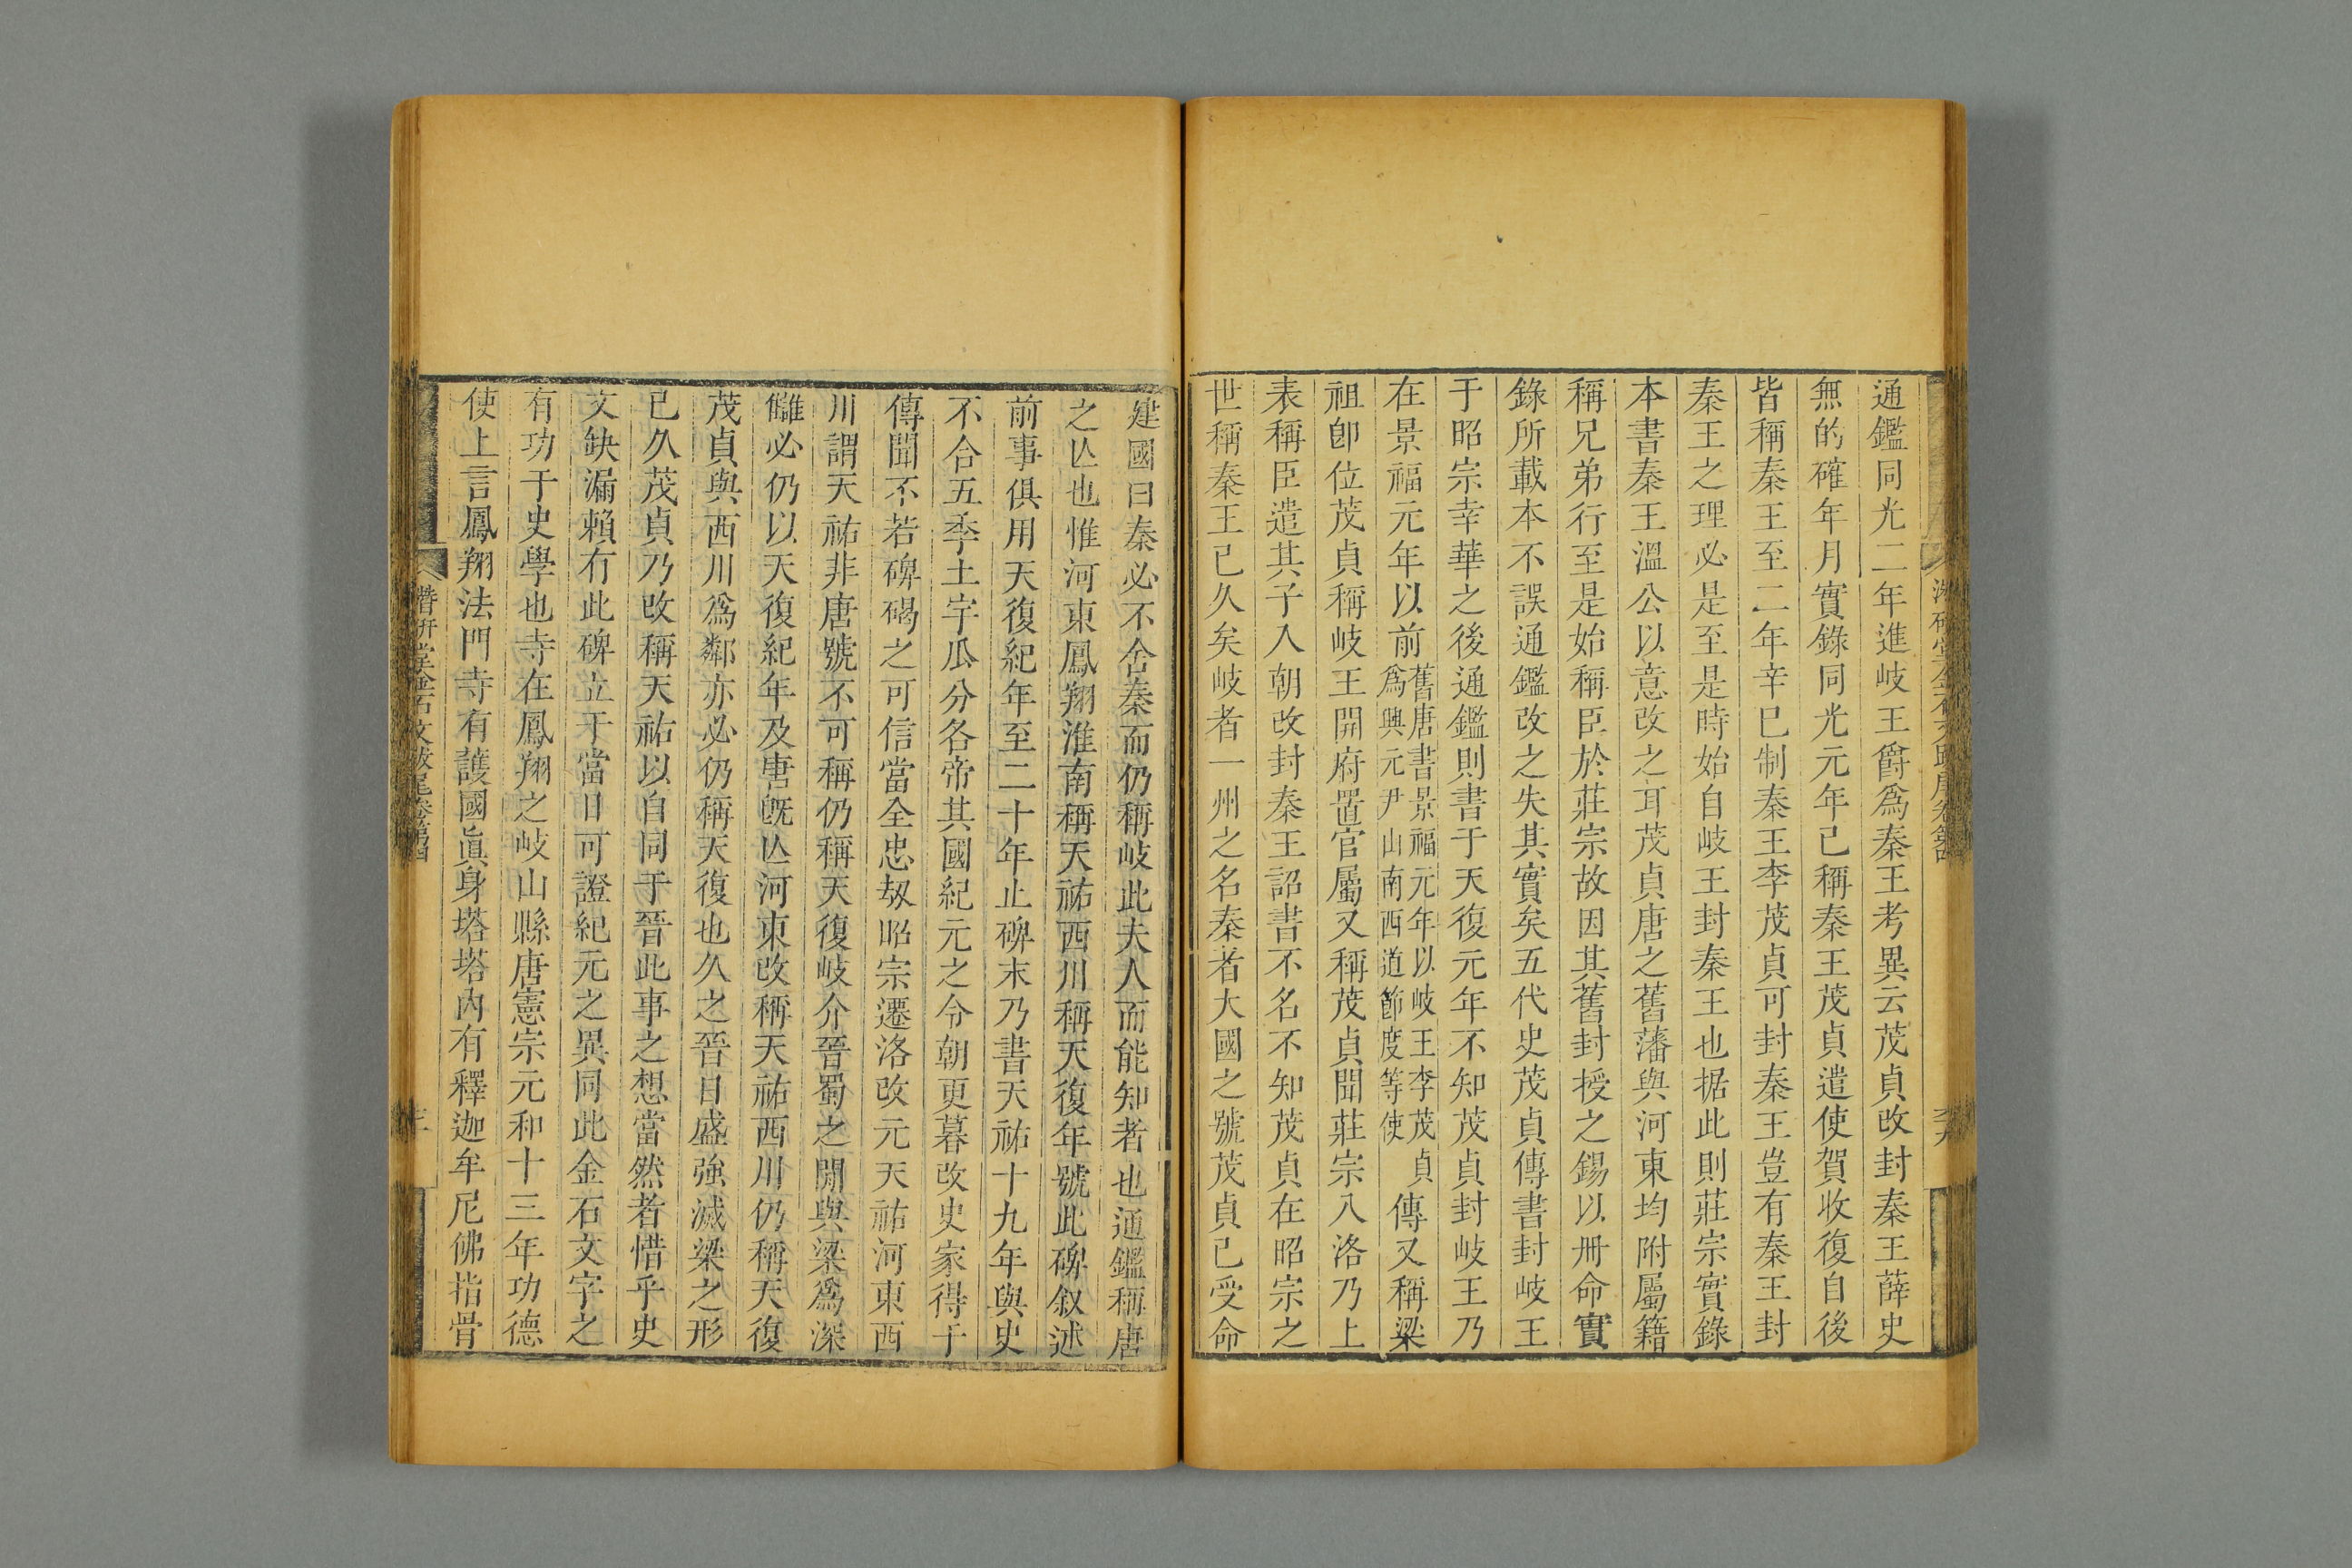 通鑑同光二年進岐王爵爲秦王考異云茂貞改封秦王薛史
無的確年月實錄同光元年已稱秦王茂貞遣使賀收復自後
皆稱秦王至二年辛巳制秦王李茂貞可封秦王豈有秦王封
秦王之理必是至是時始自岐王封秦王也据此則莊宗實錄
本書秦王溫公以意改之耳茂貞唐之舊藩與河東均附屬籍
稱兄弟行至是始稱臣於莊宗故因其舊封授之錫以册命實
錄所載本不誤通鑑改之失其實矣五代史茂貞傳書封岐王
于昭宗幸華之後通鑑則書于天復元年不知茂貞封岐王乃
在景福元年以前舊唐書景福元年以岐王李茂貞爲興元尹山南西道節度等使傳又稱梁
祖卽位茂貞稱岐王開府置官屬又稱茂貞聞莊宗入洛乃上
表稱臣遣其子入朝改封秦王詔書不名不知茂貞在昭宗之
世稱秦王已久矣岐者一州之名秦者大國之號茂貞已受命
建國曰秦必不舍秦而仍稱岐此夫人而能知者也通鑑稱唐
之亾也惟河東鳳翔淮南稱天祐西川稱天復年號此碑叙述
前事俱用天復紀年至二十年止碑末乃書天祐十九年與史
不合五季土宇瓜分各帝其國紀元之令朝更暮改史家得于
傳聞不若碑碣之可信當全忠刼昭宗遷洛改元天祐河東西
川謂天祐非唐號不可稱仍稱天復岐介晉蜀之閒與梁爲深
讎必仍以天復紀年及唐旣亾河東改稱天祐西川仍稱天復
茂貞與西川爲鄰亦必仍稱天復也久之晉日盛強滅梁之形
已久茂貞乃改稱天祐以自同于晉此事之想當然者惜乎史
文缺漏賴有此碑立于當日可證紀元之異同此金石文字之
有功于史學也寺在鳳翔之岐山縣唐憲宗元和十三年功德
使上言鳳翔法門寺有護國眞身塔塔內有釋迦牟尼佛指骨
潛研堂金石文跋尾卷第四